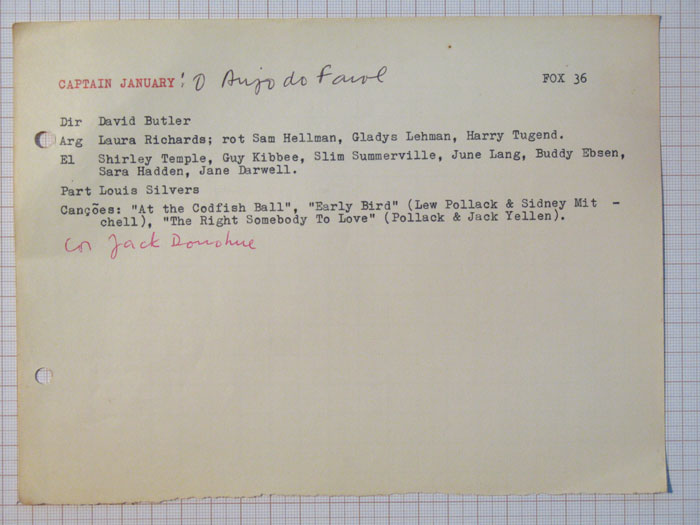 CAPTAIN JANUARY: O Anjo do Farol FOX 36
Dir David Butler
Arg Laura Richards; rot Sam Hellman, Gladys Lehman, Harry Tugend.
El Shirley Temple, Guy Kibbee, Slim Summerville, June Lang, Buddy Ebsen,
Sara Hadden, Jane Darwell.
Part Louis Silvers
Canções: "At the Codfish Ball", "Early Bird" (Lew Pollack & Sidney Mit -
chell), "The Right Somebody To Love" (Pollack & Jack Yellen).
Cor Jack Donohue